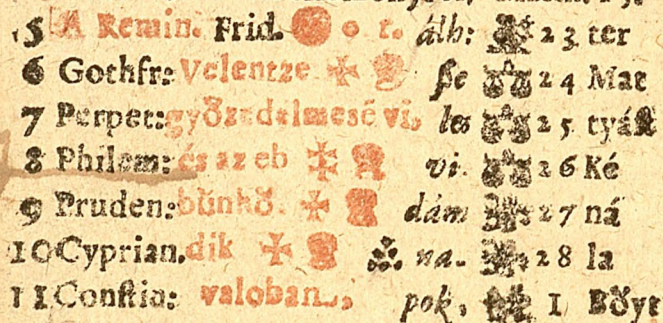 5 A Remin. Frid. 0 r. álb: 23 ter
6 Gothfr: Velentze ſie 24 Mat
7 Perpet: gyözedelmesé vi, les 25 tyáſt
8 Philem: és az eb vi. 26 Ké
9 Pruden: bünhö. dám 27 ná
10 Cyprian. dik na. 28 la
11 Conſtia: valoban., pok, 1 Böyt